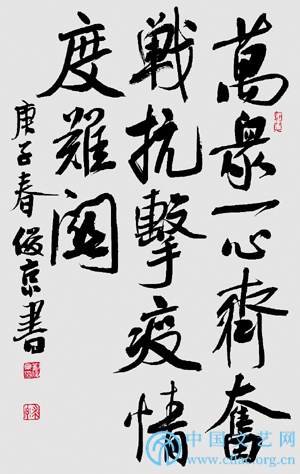 萬眾一心齊奮
戰抗擊疫情
度難關
庚子春俊京書
中国文艺网
www.cflac.org.cn